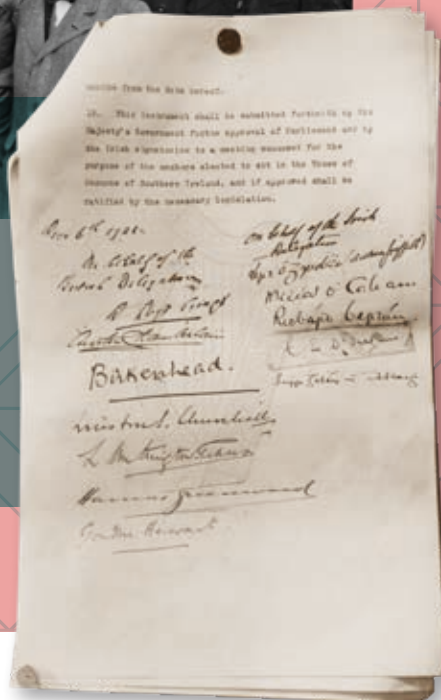 months from the date hereof.
18. This instrument shall be submitted forthwith by His
Majesty's Government for the approval of Parliament and by
the Irish signatories to a meeting summoned for the
purpose of the members elected to sit in the House of
Commons of Southern Ireland, and if approved shall be
ratified by the necessary legislation.
Dec 6th 1921.
On behalf of the
British Delegation
Austen Chamberlain
Birkenhead.
Winston S. Churchill
L Worthington Evans
Hamar Greenwood
Gordon Hewart
On behalf of the Irish
Delegation
Art Ó Gríobhtha
Mícheál Ó Coileain